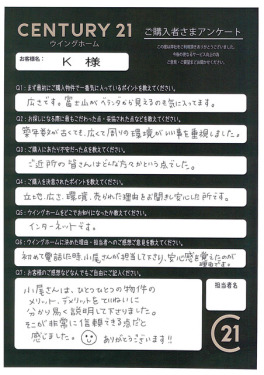 CENTURY 21
ウイングホーム
ご購入者さまアンケート
お客様名：
K 様
Q1：まず最初にご購入物件で一番気に入っているポイントを教えてください。
広さです。富士山がベランダから見えるのも気に入ってます。
Q2：お探しになる際に最もこだわった点・妥協された点など教えてください。
築年数が古くても、広くて周りの環境がいい事を重視しました。
Q3：ご購入にあたり不安だった点を教えてください。
ご近所の皆さんはどんな方でかという点でした。
Q4：ご購入を決意されたポイントを教えてください。
立地、広さ、環境、売られた理由をお聞きし安心した所です。
Q5：ウイングホームをどこでお知りになったか教えてください。
インターネットです。
Q6：ウイングホームに決めた理由・担当者へのご感想ご意見を教えてください。
初めて電話した時、小尾さんが担当して下さり、安心感を覚えたのが
理由です。
Q7：お客様のご感想などなんでもご自由にご記入ください。
小尾さんは、ひとつひとつの物件の
メリット、デメリットをていねいに
分かり易く説明して下さりました。
そこが非常に信頼できる点だと
感じました。
ありがとうございます!!
担当者名
C21